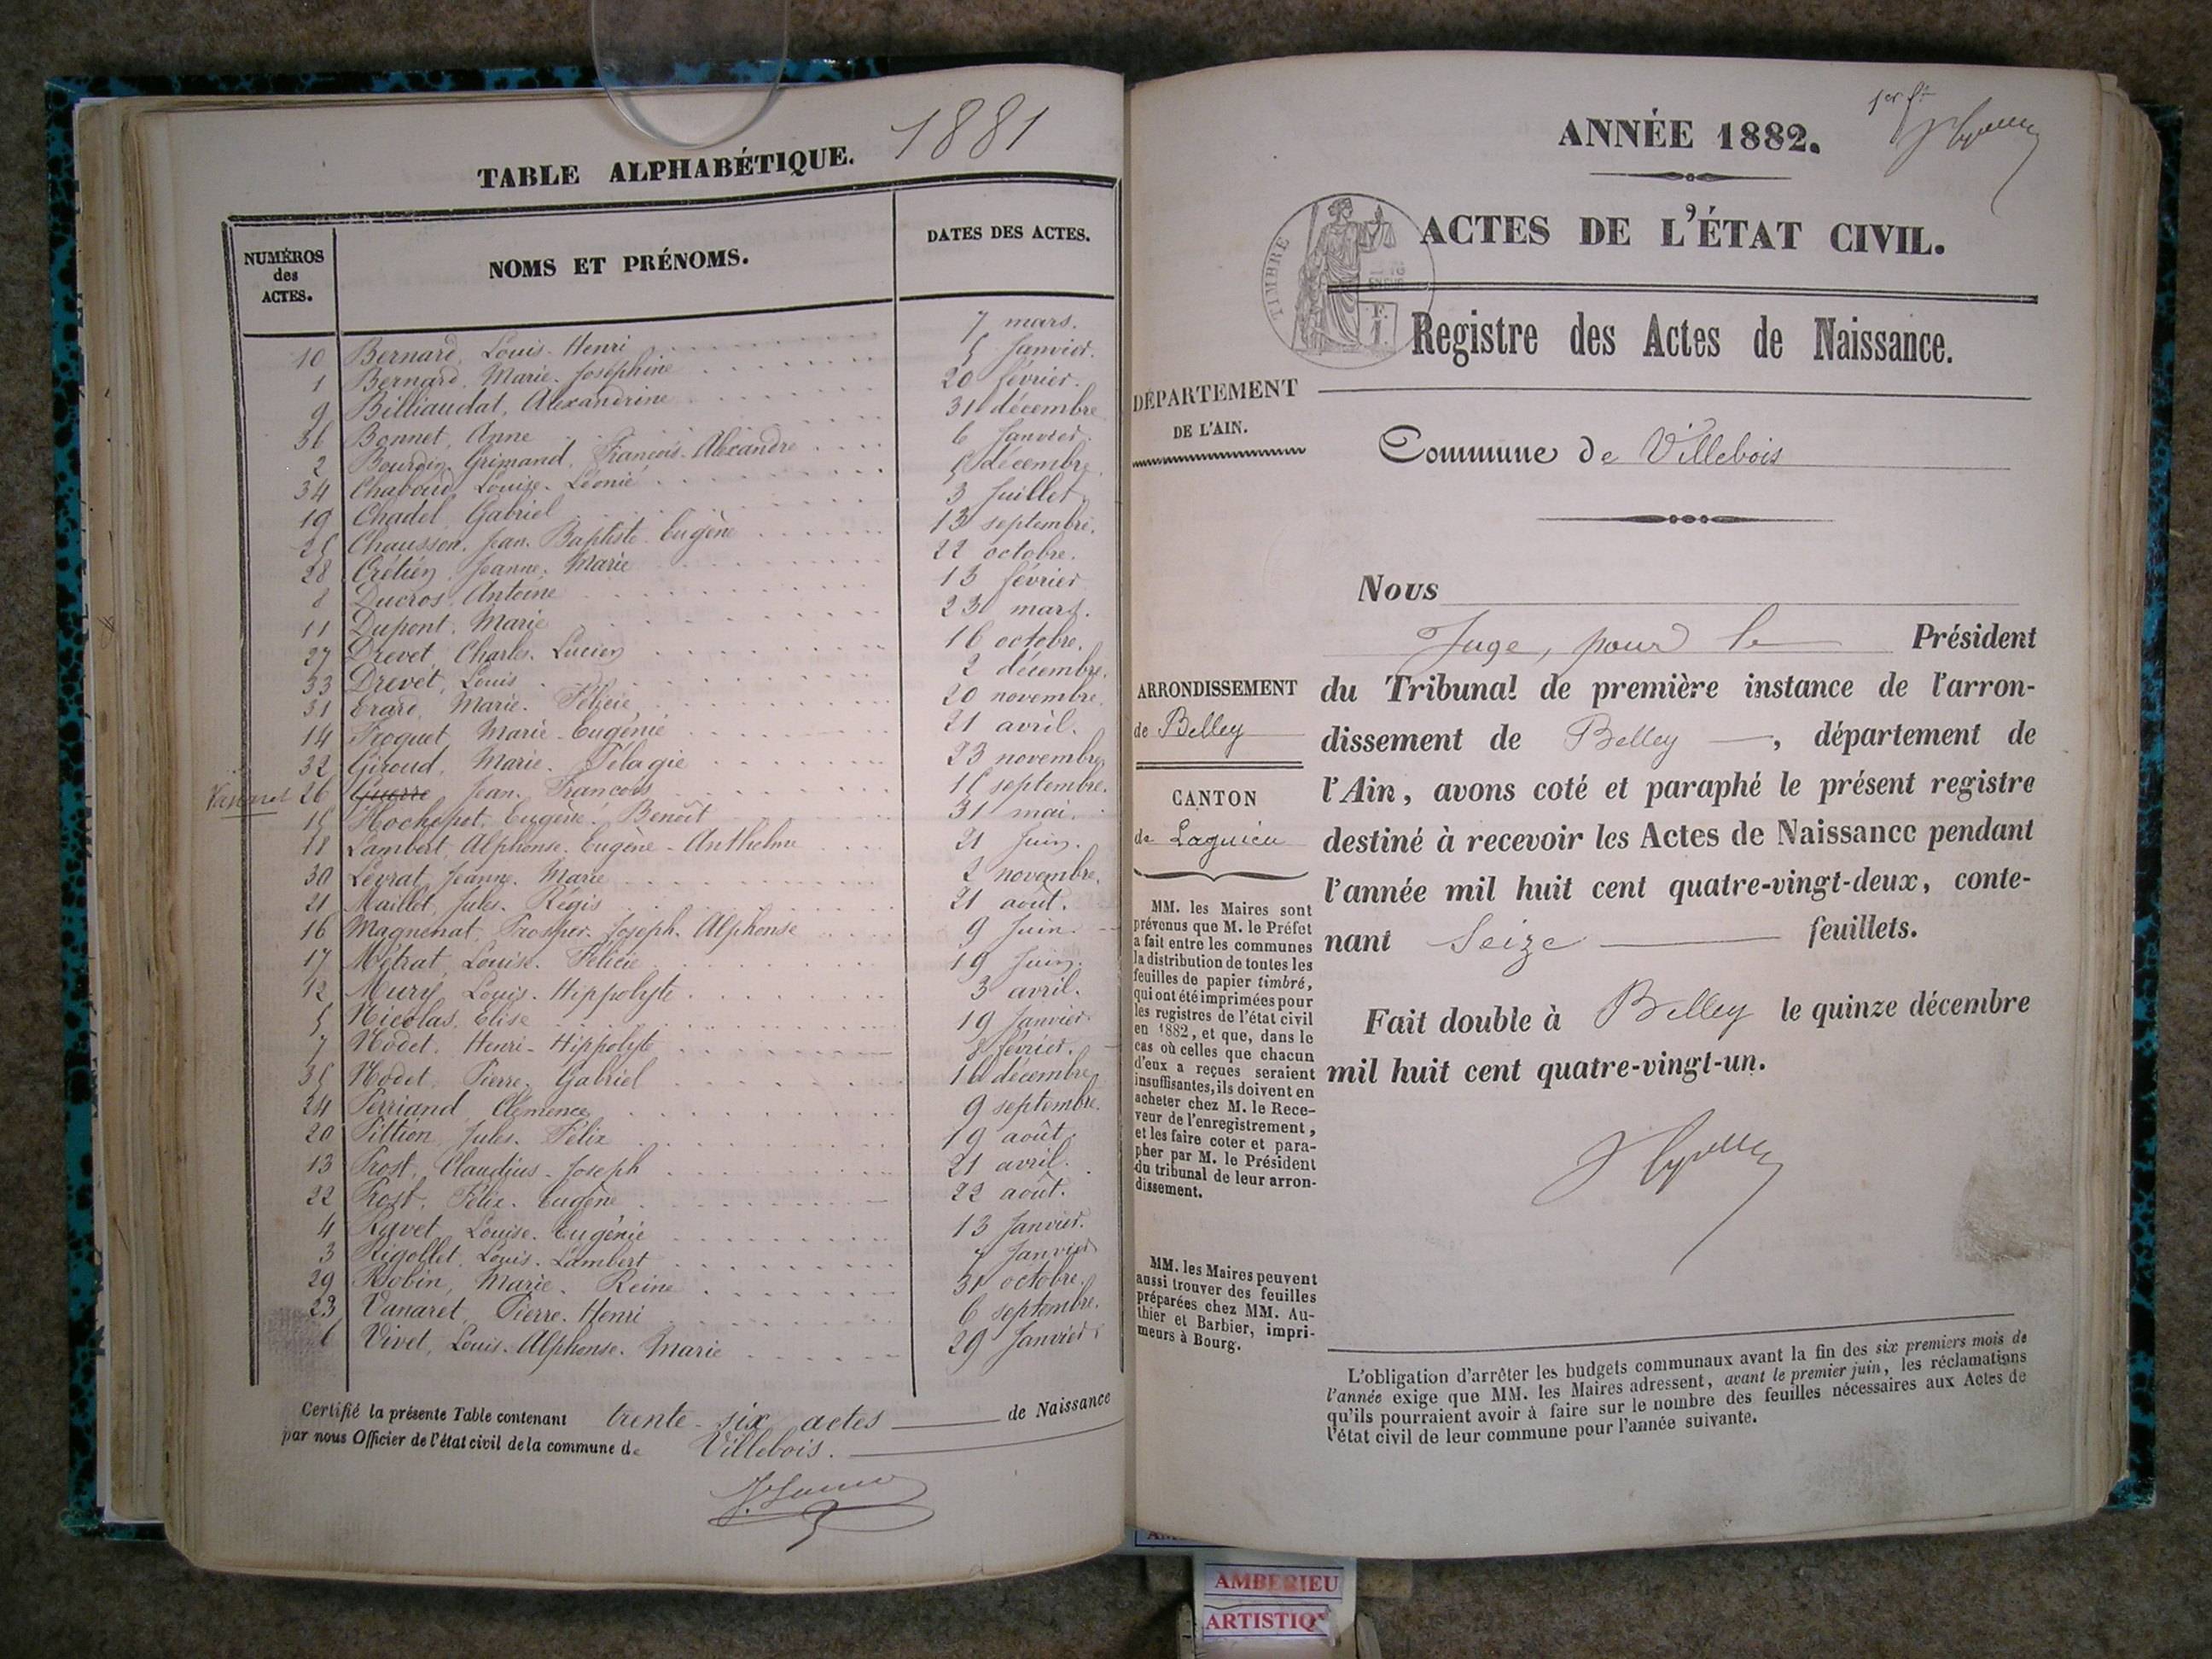 1881
TABLE ALPHABÉTIQUE.
NUMÉROS des ACTES. NOMS ET PRÉNOMS. DATES DES ACTES.
10 Bernard, Louis. Henri 7 mars.
1 Bernard, Marie. Joséphine 5 Janvier.
9 Billiaudat, Alexandrine 20 février.
36 Bonnet, Anne 31 décembre
2 Bourdin. Grimand, François. Alexandre 6 Janvier.
34 Chaboud, Louise. Léonie 5 décembre.
19 Chadel, Gabriel 3 Juillet
25 Chausson, Jean. Baptiste. Eugène 13 septembre.
28 Crétien, Jeanne. Marie 22 octobre.
8 Ducros, Antoine 13 février
11 Dupont, Marie 23 mars.
27 Drevet, Charles. Lucien 16 octobre.
33 Drevet, Louis 2 décembre.
31 Erard, Marie. Félicie 20 novembre.
14 Froquet, Marie-Eugénie 21 avril.
32 Giroud, Marie. Pélagie 23 novembre
26 Guerre Jean. François 16 septembre.
15 Hochepot, Eugène. Benoît 31 mai.
18 Lambert, Alphonse. Eugène-Anthelme 21 Juin.
30 Levrat, Jeanne. Marie 2 novembre.
21 Maillet, Jules. Régis 21 août.
16 Magnenat, Prosper. Joseph. Alphonse 9 Juin.
17 Métrat, Louise. Félicie 19 Juin.
12 Mury, Louis. Hippolyte 3 avril.
5 Nicolas, Elise 19 Janvier
7 Nodet, Henri-Hippolyte 8 février.
35 Nodet, Pierre. Gabriel 16 décembre
24 Perriand, Clémence 9 septembre.
20 Pittion, Jules. Félix 19 août.
13 Prost, Claudius-Joseph 21 avril.
22 Prost, Félix. Eugène 22 août.
4 Ravet, Louise. Eugénie 13 Janvier.
3 Rigollet, Louis. Lambert 7 Janvier
29 Robin, Marie. Reine 31 octobre.
23 Vanaret, Pierre. Henri 6 septembre.
6 Vivet, Louis. Alphonse. Marie 29 Janvier
Certifié la présente Table contenant trente-six actes de Naissance
par nous Officier de l'état civil de la commune de Villebois.
1er ft
ANNÉE 1882.
TIMBRE
ACTES DE L'ÉTAT CIVIL.
Registre des Actes de Naissance.
DÉPARTEMENT
DE L'AIN.
Commune de Villebois
Nous
Juge, pour le Président
du Tribunal de première instance de l'arron-
dissement de Belley, département de
l'Ain, avons coté et paraphé le présent registre
destiné à recevoir les Actes de Naissance pendant
l'année mil huit cent quatre-vingt-deux, conte-
nant Seize feuillets.
Fait double à Belley le quinze décembre
mil huit cent quatre-vingt-un.
ARRONDISSEMENT
de Belley
CANTON
de Lagnieu
MM. les Maires sont
prévenus que M. le Préfet
a fait entre les communes
la distribution de toutes les
feuilles de papier timbré,
qui ont été imprimées pour
les registres de l'état civil
en 1882, et que, dans le
cas où celles que chacun
d'eux a reçues seraient
insuffisantes, ils doivent en
acheter chez M. le Rece-
veur de l'enregistrement,
et les faire coter et para-
pher par M. le Président
du tribunal de leur arron-
dissement.
MM. les Maires peuvent
aussi trouver des feuilles
préparées chez MM. Au-
thier et Barbier, impri-
meurs à Bourg.
L'obligation d'arrêter les budgets communaux avant la fin des six premiers mois de
l'année exige que MM. les Maires adressent, avant le premier juin, les réclamations
qu'ils pourraient avoir à faire sur le nombre des feuilles nécessaires aux Actes de
l'état civil de leur commune pour l'année suivante.
AMBERIEU
ARTISTIQ